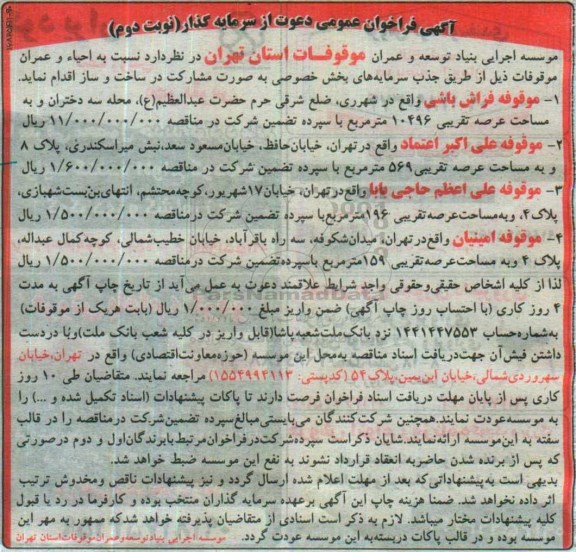 آگهی فراخوان عمومی دعوت از سرمایه گذار(نوبت دوم)
موسسه اجرایی بنیاد توسعه و عمران موقوفات استان تهران در نظردارد نسبت به احیاء و عمران
موقوفات ذیل از طریق جذب سرمایه‌های بخش خصوصی به صورت مشارکت در ساخت و ساز اقدام نماید.
۱- موقوفه فراش باشی واقع در شهرری، ضلع شرقی حرم حضرت عبدالعظیم(ع)، محله سه دختران و به
مساحت عرصه تقریبی ۱۰۴۹۶ مترمربع با سپرده تضمین شرکت در مناقصه ۱۱/۰۰۰/۰۰۰/۰۰۰ ریال
۲- موقوفه علی اکبر اعتماد واقع درتهران، خیابان‌حافظ، خیابان‌مسعود سعد،نبش میراسکندری، پلاک ۸
و به مساحت عرصه تقریبی۵۶۹ مترمربع با سپرده تضمین شرکت در مناقصه ۱/۶۰۰/۰۰۰/۰۰۰ ریال
۳- موقوفه علی اعظم حاجی بابا واقع‌درتهران، خیابان۱۷شهریور،کوچه‌محتشم، انتهای‌بن‌بست‌شهبازی،
پلاک۴، وبه‌مساحت‌عرصه‌تقریبی ۱۹۶مترمربع‌با سپرده تضمین شرکت درمناقصه ۱/۵۰۰/۰۰۰/۰۰۰ ریال
۴- موقوفه امینیان واقع‌درتهران، میدان‌شکوفه، سه راه باقرآباد، خیابان خطیب‌شمالی، کوچه‌کمال عبداله،
پلاک ۴ وبه مساحت‌عرصه‌تقریبی ۱۵۹مترمربع باسپرده‌تضمین شرکت درمناقصه ۱/۵۰۰/۰۰۰/۰۰۰ ریال
لذا از کلیه اشخاص حقیقی‌وحقوقی واجد شرایط علاقمند دعوت به عمل می‌آید از تاریخ چاپ آگهی به مدت
۴ روز کاری (با احتساب روز چاپ آگهی) ضمن واریز مبلغ ۱/۰۰۰/۰۰۰ ریال (بابت هریک از موقوفات)
به‌شماره‌حساب ۱۴۴۱۴۴۷۵۵۳ نزد بانک‌ملت‌شعبه‌پاشا(قابل واریز در کلیه شعب بانک ملت)وبا دردست
داشتن فیش‌آن جهت‌دریافت اسناد مناقصه به‌محل این موسسه (حوزه‌معاونت‌اقتصادی) واقع در تهران،خیابان
سهروردی‌شمالی،خیابان ابن‌یمین،پلاک۵۴ (کدپستی: ۱۵۵۴۹۹۴۱۱۳) مراجعه نمایند. متقاضیان طی ۱۰ روز
کاری پس از پایان مهلت دریافت اسناد فراخوان فرصت دارند تا پاکات پیشنهادات (اسناد تکمیل شده و ...) را
به موسسه‌عودت نمایند.همچنین شرکت‌کنندگان می‌بایستی‌مبالغ‌سپرده تضمین‌شرکت درمناقصه را در قالب
سفته به این‌موسسه ارائه‌نمایند.شایان ذکراست سپرده‌شرکت‌درفراخوان‌مرتبط‌بابرندگان‌اول و دوم درصورتی
که پس از برنده شدن حاضربه انعقاد قرارداد نشوند به نفع این موسسه ضبط خواهد شد.
بدیهی است به‌پیشنهاداتی‌که بعد از مهلت اعلام شده ارسال گردد و نیز پیشنهادات ناقص ومخدوش ترتیب
اثر داده نخواهد شد. ضمنا هزینه چاپ این آگهی برعهده سرمایه گذاران منتخب بوده و کارفرما در رد یا قبول
کلیه پیشنهادات مختار میباشد. لازم به ذکر است اسنادی از متقاضیان پذیرفته خواهد شدکه ممهور به مهر این
موسسه بوده و در قالب پاکات دربسته به این موسسه عودت گردد. موسسه اجرایی بنیادتوسعه‌وعمران‌موقوفات‌استان تهران